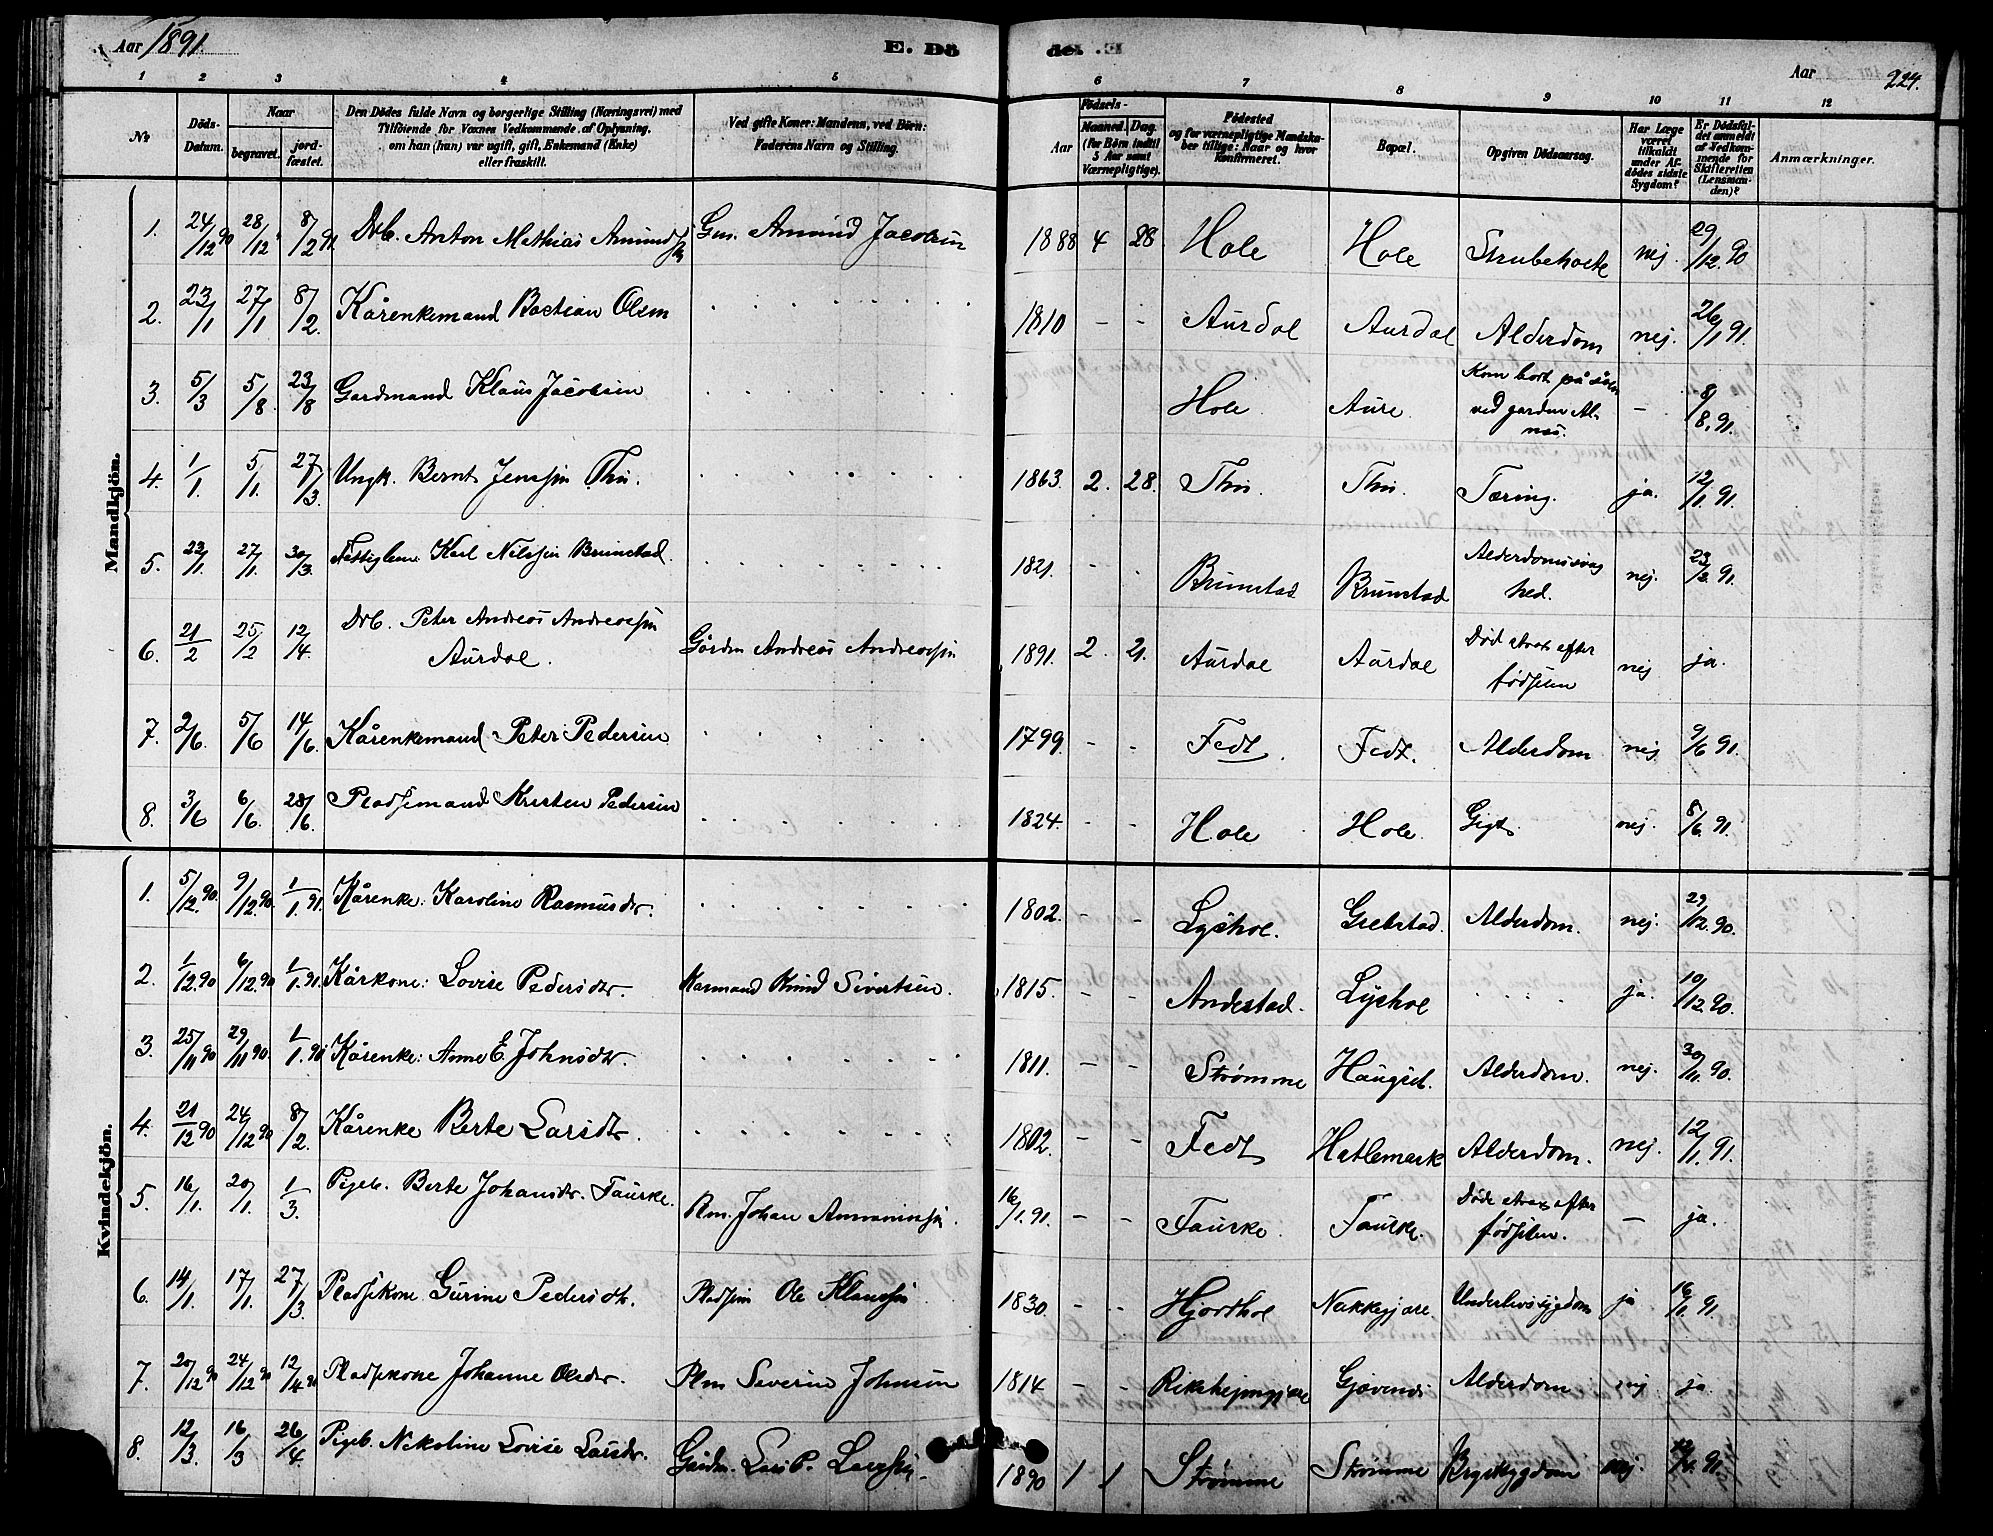 Aar 1891. E. Dö de. Aar 224.
1 2 3 4 5 6 7 8 9 10 11 12
No. Döds-Datum. Naar begravet. jord-fæstet. Den Dödes fulde Navn og borgerlige Stilling (Næringsvei) med Tilföiende for Voxnes Vedkommende af Oplysning, om han (hun) var ugift, gift, Enkemand (Enke) eller fraskilt. Ved gifte Koner: Mandens, ved Börn: Faderens Navn og Stilling. Födsels- Aar Maaned. Dag. (for Börn indtil 5 Aar samt Værnepligtige). Födested og for værnepligtige Mandskaber tillige: Naar og hvor konfirmeret. Bopæl. Opgiven Dödsaarsag. Har Læge været tilkaldt under Afdödes sidste Sygdom? Er Dödsfaldet anmeldt af Vedkommende for Skifteretten (Lensmanden)? Anmærkninger.
Mandkjön.
1. 24/12 90 28/12 8/2 91 Drb. Anton Mathias Amundsen Gm. Amund Jacobsen 1888 4 28 Hole Hole Strubehoste nej. 29/12.90
2. 23/1 27/1 8/2. Kårenkemand Bastian Olsen 1810 - - Aurdal Aurdal Alderdom nej. 26/1 91.
3. 5/3 5/8 23/8 Gardmand Klaus Jacobsen Hole. Aure. Kom bort på sjøen ved garden Alnes. - 8/8.91.
4. 1/1. 5/1. 27/3 Ungk. Bernt Jenssen Thu. 1863. 2. 28. Thu. Thu. Tæring. ja. 12/1 91.
5. 23/1. 27/1. 30/3. Fattiglem Karl Nilssen Brunstad. 1821. - - Brunstad Brunstad Alderdomssvaghed. nej. 23/3. 91.
6. 21/2 25/2 12/4. Drb. Peter Andreas Andreassen Aurdal. Gårdm Andreas Andreassen 1891. 2. 21. Aurdal Aurdal Død strax efter fødselen nej ja.
7. 2/6. 5/6 14/6. Kårenkemand Peter Pedersen 1799. - - Fedt. Fedt. Alderdom nej 9/6 91.
8. 3/6 6/6. 28/6. Pladsemand Kristen Pedersen 1824. - - Hole Hole. Gigt. nej. 8/6. 91.
Kvindekjön.
1. 5/12.90 9/12.90. 1/1. 91. Kårenke: Karoline Rasmusdr. 1802. - - Lyshol. Grebstad. Alderdom. nej. 29/12.90.
2. 1/12.90 6/12.90 1/1.91. Kårkone: Lovise Pedersdtr. Karmand Knud Sivertsen. 1815. - - Andestad. Lyshol ja. 10/12.90.
3. 25/11 90 29/11 90. 1/1.91 Kårenke: Anne E. Johnsdtr. 1811. - - Strømme Haugset. Alderdom. nej. 30/11. 90.
4. 21/12 90 24/12 90 8/2. Kårenke Berte Larsdtr. 1802. - - Fedt Hatlemark Alderdom. nej. 12/1. 91.
5. 16/1. 20/1. 1/3. Pigeb. Berte Johansdr. Taurke. Rm. Johan 16/1.91. - - Taurke. Taurke. Døde strax efter fødselen. - ja.
6. 14/1. 17/1. 27/3. Pladsekone Gurine Pedersdtr. Pladsem Ole Klaussen 1830. - - Hjorthol Nakkegjære. Underlivssygdom ja 16/1. 91
7. 20/12 90 24/12 90 12/4 91 Pladsekone Johanne Olsdr. Plm Severin Johnsen 1814 - - Gjævenes Alderdom nej ja
8. 12/3. 16/3 26/4 Pigeb. Nekoline Lovise Larsdr. Gårdm. Lars P. Larssen. 1890 1 1 Strømme Strømme Brystsygdom nej.